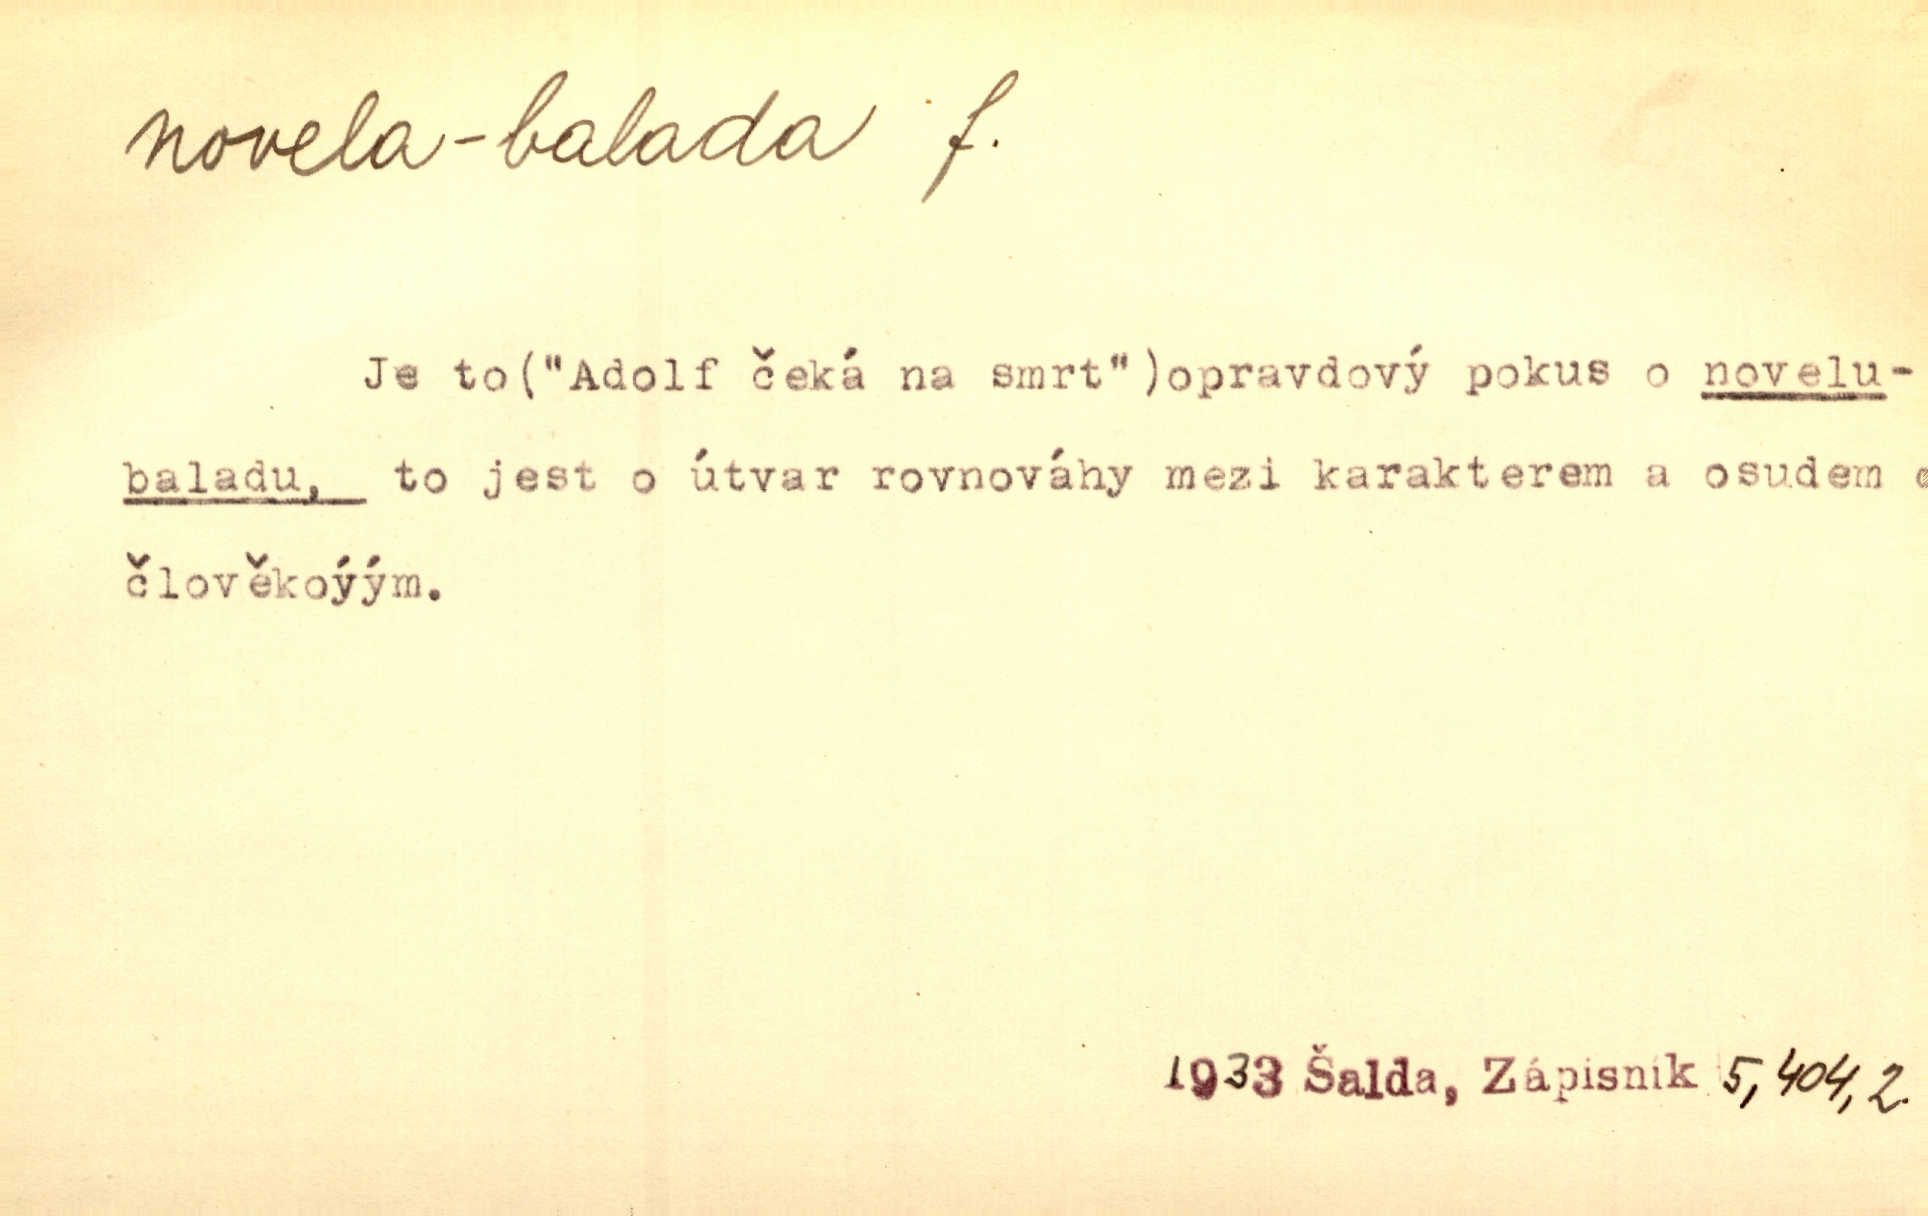 novela-balada f.
Je to("Adolf čeká na smrt")opravdový pokus o novelu-
baladu, to jest o útvar rovnováhy mezi karakterem a osudem
člověkoýým.
1933 Šalda, Zápisník 5, 404, 2.